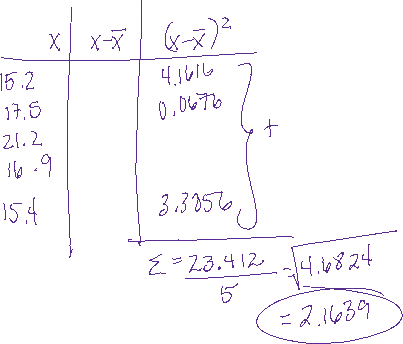 x x-x̄ (x-x̄)²
15.2 4.1616
17.5 0.0676
21.2
16.9
15.4 3.3856
+
Σ = 23.412 / 5 = √4.6824
= 2.1639